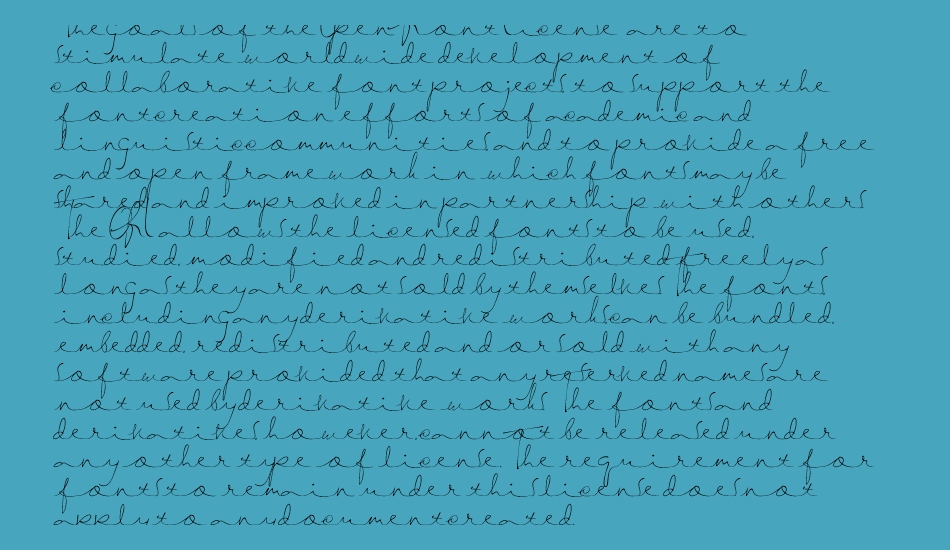 The goals of the Open Font License are to
stimulate worldwide development of
collaborative font projects to support the
font creation efforts of academic and
linguistic communities and to provide a free
and open framework in which fonts may be
shared and improved in partnership with others
The OFL allows the licensed fonts to be used,
studied, modified and redistributed freely as
long as they are not sold by themselves The fonts
including any derivative works can be bundled,
embedded, redistributed and or sold with any
software provided that any reserved names are
not used by derivative works The fonts and
derivatives however, cannot be released under
any other type of license. The requirement for
fonts to remain under this license does not
apply to any document created